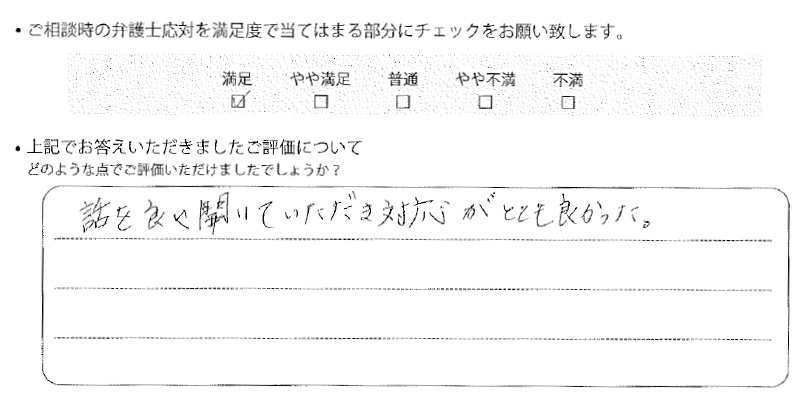 ・ご相談時の弁護士応対を満足度で当てはまる部分にチェックをお願い致します。
満足 やや満足 普通 やや不満 不満
☑ ☐ ☐ ☐ ☐
・上記でお答えいただきましたご評価について
どのような点でご評価いただけましたでしょうか？
話を良く聞いていただき対応がとても良かった。